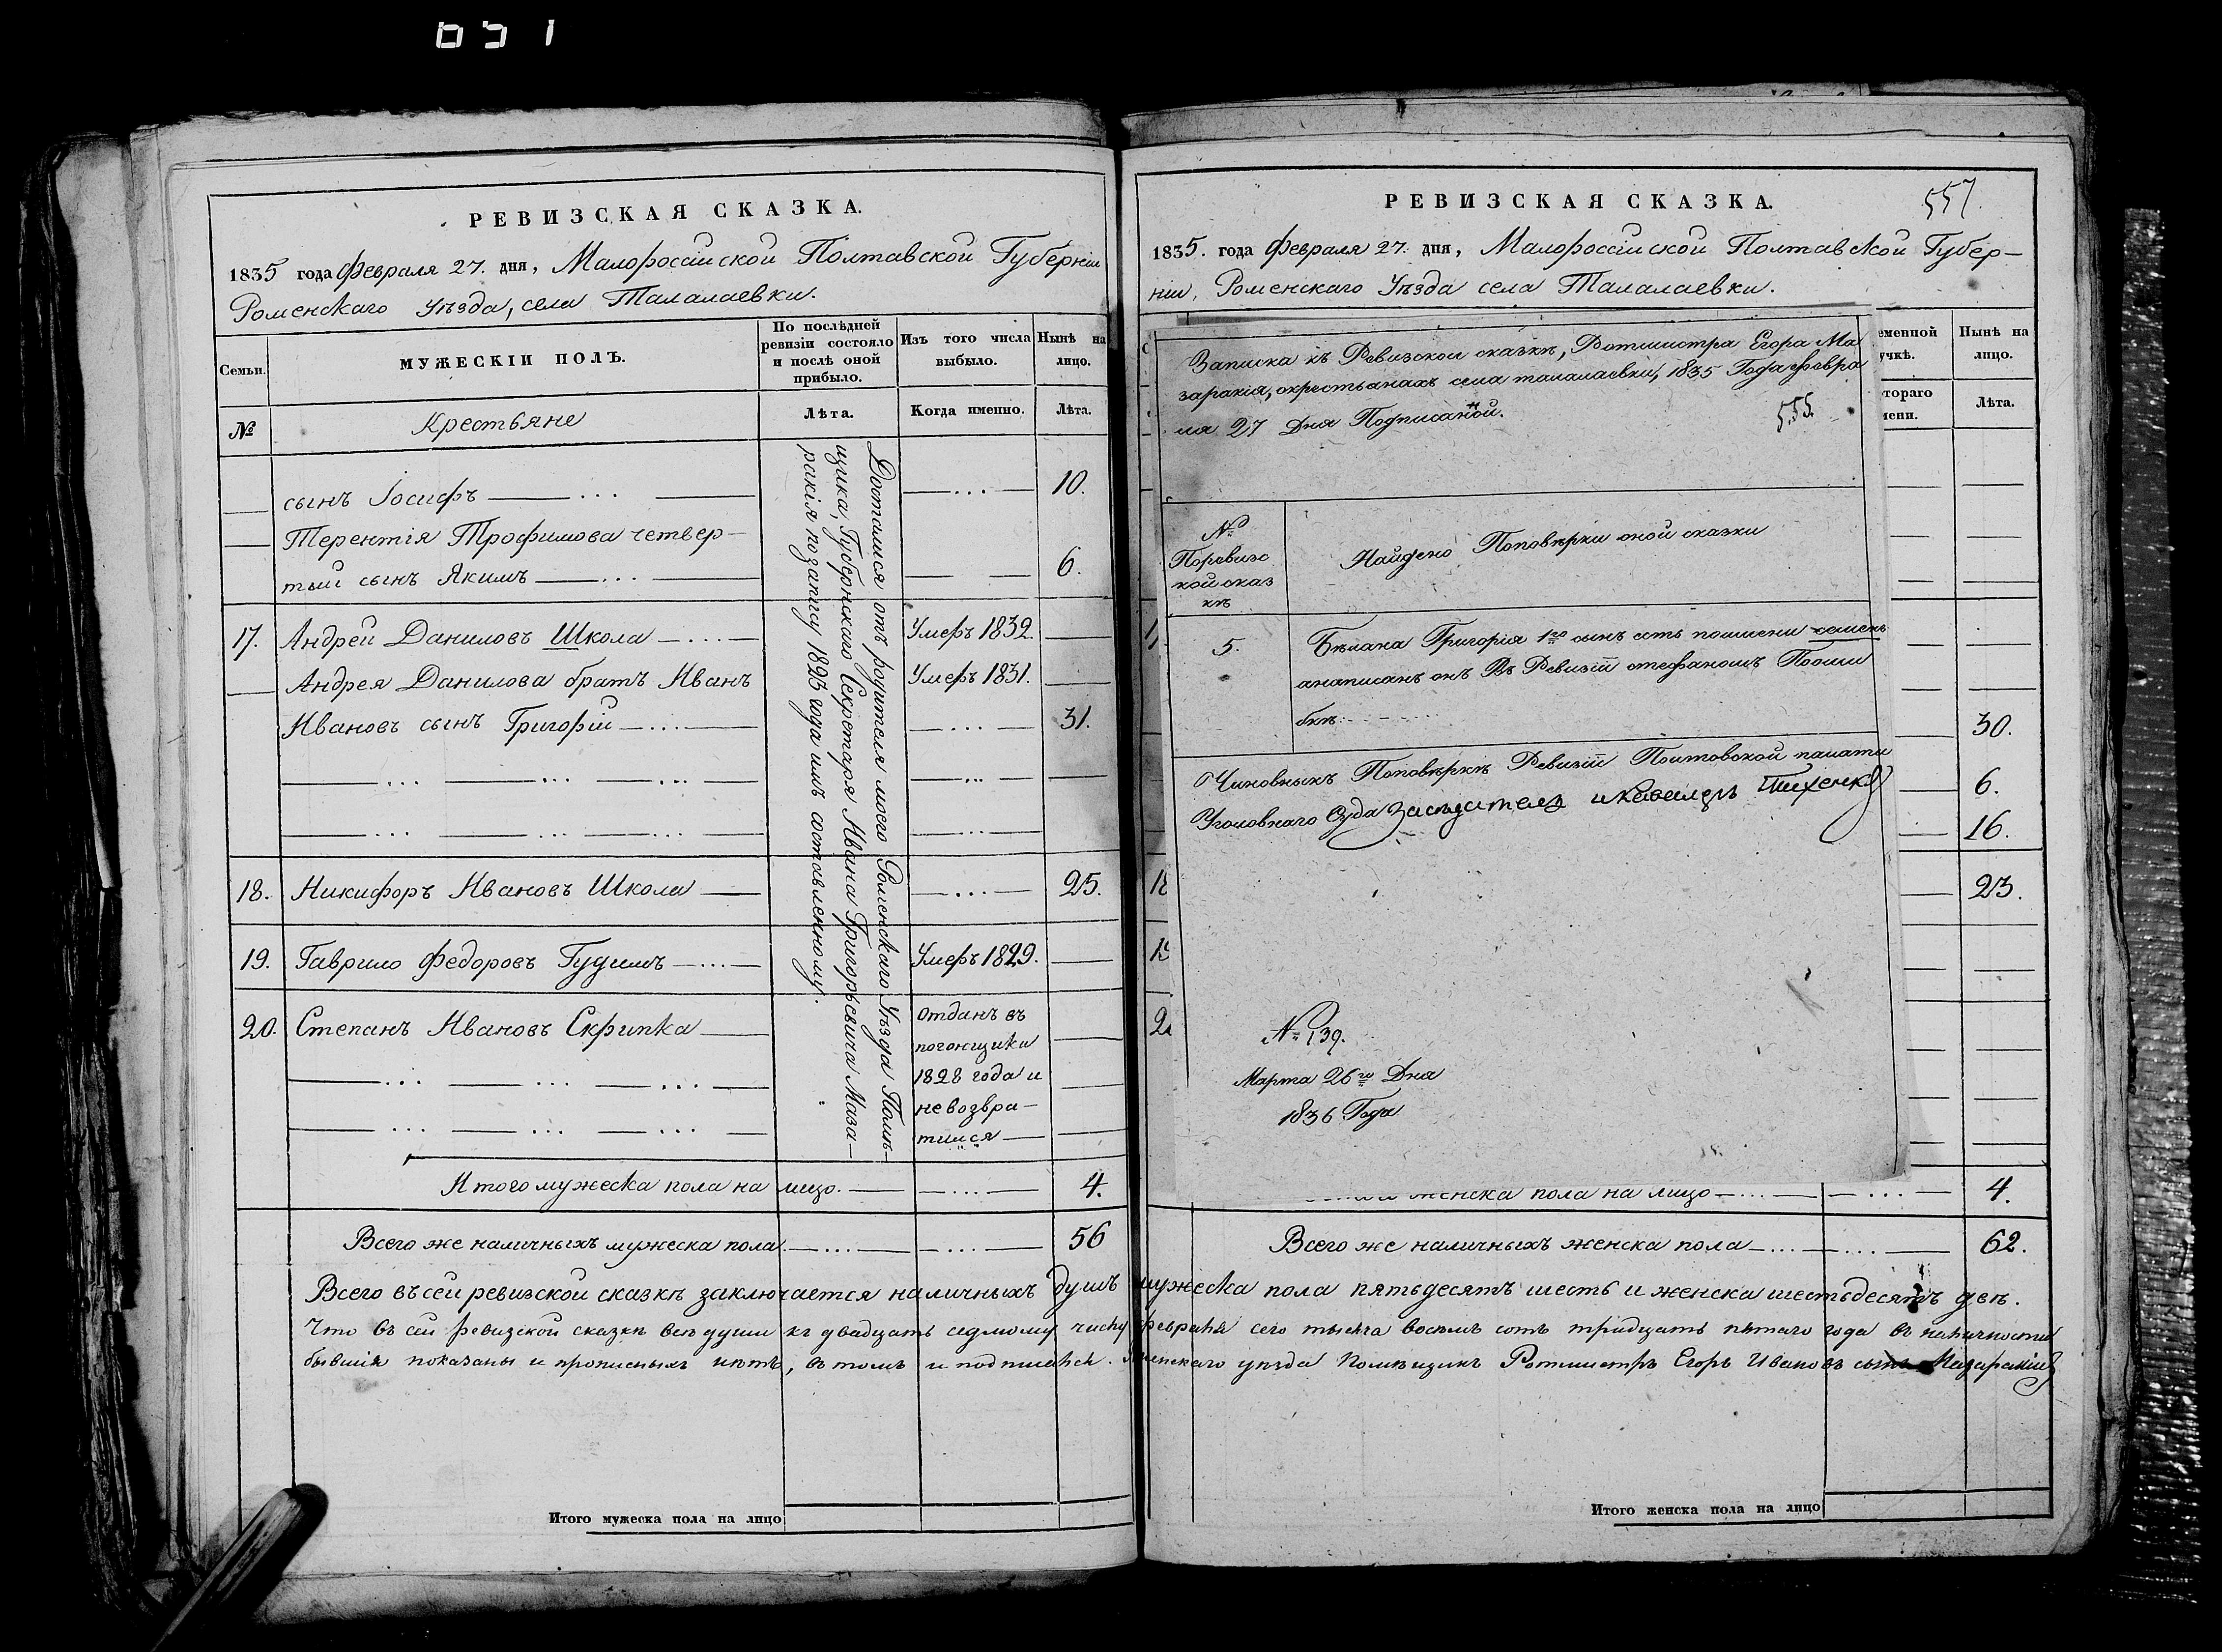 651
РЕВИЗСКАЯ СКАЗКА.
1835 года Февраля 27. дня, Малороссійской Полтавской Губерніи
Роменскаго Уѣзда, села Талалаевки.
Семьи.
МУЖЕСКІИ ПОЛЪ.
По послѣдней ревизіи состояло и послѣ оной прибыло.
Изъ того числа выбыло.
Нынѣ на лицо.
№
Крестьяне
Лѣта.
Когда именно.
Лѣта.
Достался отъ родителя моего Роменскаго Уѣзда Помѣ-
щика, Губернскаго Секретаря Ивана Григорьевича Маза-
ракія по запису 1825 года имъ составленному.
сынъ Іосифъ — ... — — ... — 10.
Терентія Трофимова четвер-
тый сынъ Якимъ — ... — — — 6.
17. Андрей Даниловъ Школа — ... — Умеръ 1832. —
Андрея Данилова братъ Иванъ Умеръ 1831. —
Ивановъ сынъ Григорій — ... — — ... — 31.
18. Никифоръ Ивановъ Школа — — ... — 25.
19. Гаврило Федоровъ Гудимъ — ... — Умеръ 1829. —
20. Степанъ Ивановъ Скрипка — отданъ въ
погонщики
1828 года и
невозвра-
тился —
Итого мужеска пола на лицо. — — ... — 4.
Всего же наличныхъ мужеска пола — ... — — ... — 56
Всего въ сей ревизской сказкѣ заключается наличныхъ душъ мужеска пола пятьдесятъ шесть и женска шестьдесятъ двѣ.
Что въ сей ревизской сказкѣ всѣ души къ двадцать седмому числу февраля сего тысяча восемь сотъ тридцать пятаго года въ наличности
бывшія показаны и прописныхъ нѣтъ, въ томъ и подписался. Роменскаго уѣзда Помѣщикъ Ротмистръ Егоръ Ивановъ сынъ Мазаракій
Итого мужеска пола на лицо
РЕВИЗСКАЯ СКАЗКА.
557.
1835. года Февраля 27. дня, Малороссійской Полтавской Губер-
ніи, Роменскаго Уѣзда села Талалаевки.
Записка къ Ревизской сказкѣ, Ротмистра Егора Ма
заракія, окрестьянахъ села талалаевки, 1835 Года февра
ля 27 Дня Подписаной.
555.
№
Поревиз
кой сказ
кѣ
Найдено Поповѣрки оной сказки
5.
Бѣлана Григорія 1го сынъ есть поимени
анаписанъ онъ Въ Ревизіи стефаномъ Пооши
бкѣ.
Чиновныкъ Поповѣркѣ Ревизіи Полтовской палати
Уголовнаго Суда Засѣдатель
№ 139.
Марта 26го Дня
1836 Года
еменной
учкѣ.
Нынѣ на
лицо.
тораго
мени.
Лѣта.
30.
6.
16.
18
23.
19
женска пола на лицо — ... — — ... — 4.
Всего же наличныхъ женска пола — ... — ... — 62.
Итого женска пола на лицо